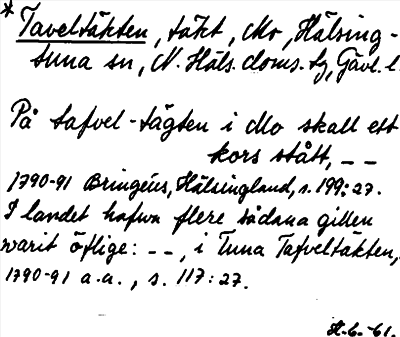 * Taveltäkten, täkt, Mo, Hälsing-
tuna sn, N. Häls. doms. tg, Gävl. l.
På tafvel-tägten i Mo skall ett
kors stått, - -
1790-91 Bringéus, Hälsingland, s. 199:27.
I landet hafwa flere sådana gillen
warit öflige: - -, i Tuna Tafveltäkten,
1790-91 a.a., s. 117:27.
H.G.-61.